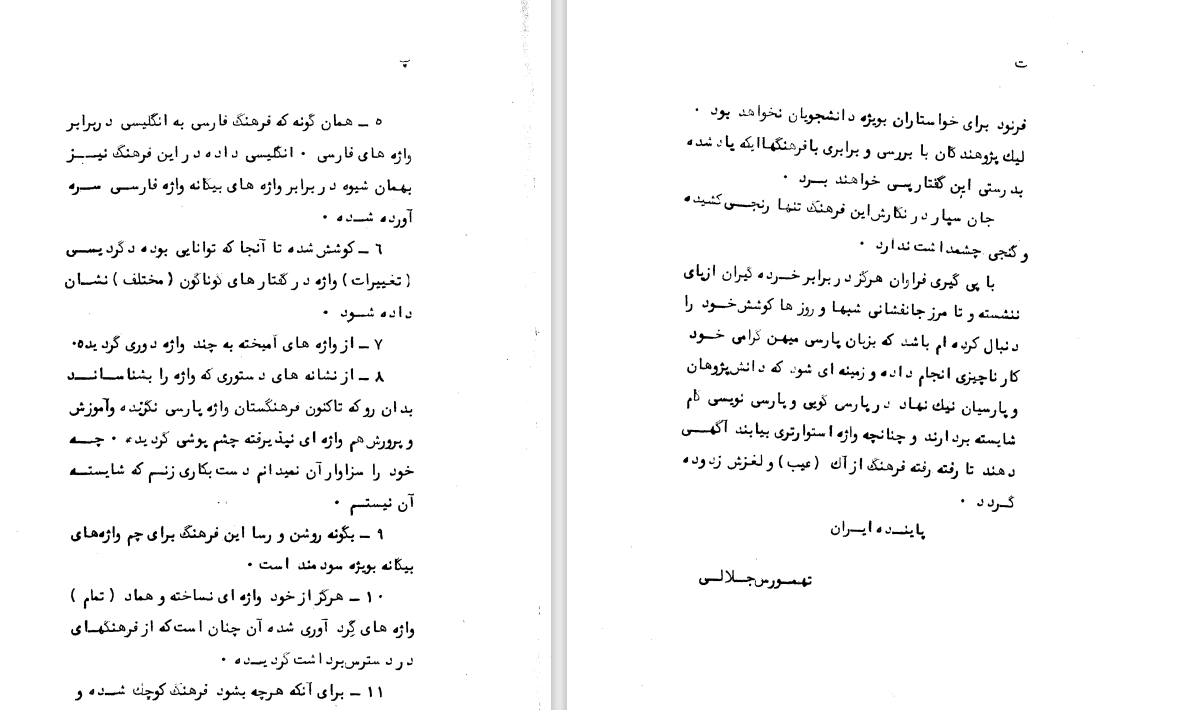 پ
۵ ـ همان گونه که فرهنگ فارسی به انگلیسی در برابر
واژه های فارسی ۰ انگلیسی داده در این فرهنگ نیـــز
بهمان شیوه در برابر واژه های بیگانه واژه فارســی ســره
آورده شــده ۰
۶ ـ کوشش شده تا آنجا که توانایی بوده دگردیســی
(تغییرات) واژه در گفتار های گوناگون (مختلف) نشــان
داده شــود ۰
۷ ـ از واژه های آمیخته به چند واژه دوری گردیده۰
۸ ـ از نشانه های دستوری که واژه را بشناســانــد
بدان رو که تاکنون فرهنگستان واژه پارسی نگزیده وآموزش
و پرورش هم واژه ای نپذیرفته چشم پوشی گردیده ۰ چــه
خود را سزاوار آن نمیدانم دست بکاری زنـم که شایستــه
آن نیستــم ۰
۹ ـ بگونه روشن و رسا این فرهنگ برای چم واژههای
بیگانه بویژه سودمند است ۰
۱۰ ـ هرگز از خود واژه ای نساخته و هماد (تمام)
واژه های گِرد آوری شده آن چنان است که از فرهنگهــای
در دسترس برداشت گردیــده ۰
۱۱ ـ برای آنکه هرچه بشود فرهنگ کوچک شــده و
ت
فرنود برای خواستاران بویژه دانشجویان نخواهد بود ۰
لیك پژوهندگان با بررسی و برابری با فرهنگهاایکه یاد شده
بدرستی این گفتار پی خواهند بــرد ۰
جان سپار در نگارش این فرهنگ تنها رنجــی کشیده
و گنجی چشمداشت ندارد ۰
با پی گیری فراوان هرگز در برابر خــرده گیران از پای
ننشسته و تا مرز جانفشانی شبها و روز ها کوشش خــود را
دنبال کرده ام باشد که بزبان پارسی میهن گرامی خــود
کار ناچیزی انجام داده و زمینه ای شود که دانش پژوهان
و پارسیان نیك نهاد در پارسی گویی و پارسی نویسی گام
شایسته بردارند و چنانچه واژه استوارتری بیابند آگهــی
دهند تا رفته رفته فرهنگ از آك (عیب) و لغزش زدوده
گــردد ۰
پاینــده ایــران
تهمــورس جــلالــی